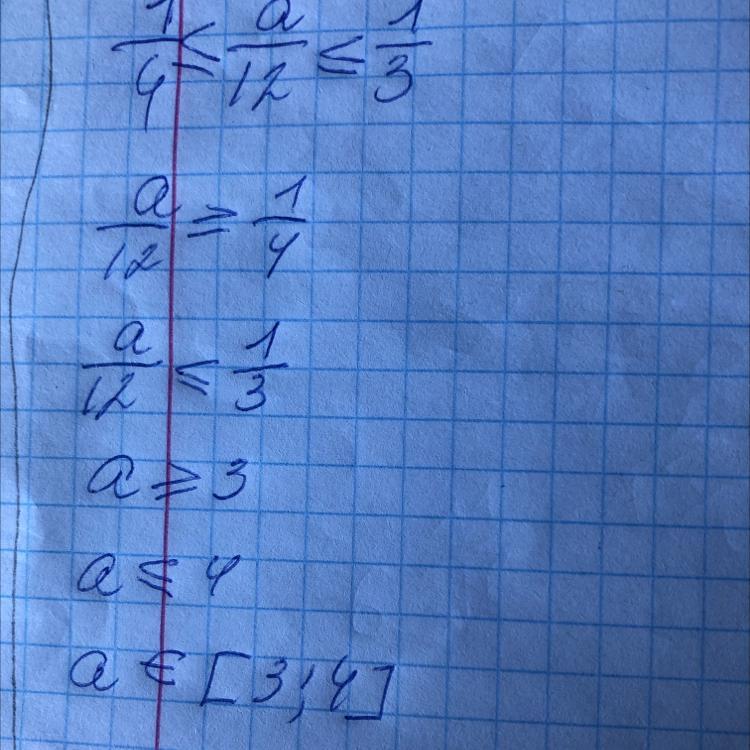 1/4 ≤ a/12 ≤ 1/3
a/12 ≥ 1/4
a/12 ≤ 1/3
a ≥ 3
a ≤ 4
a ∈ [3; 4]